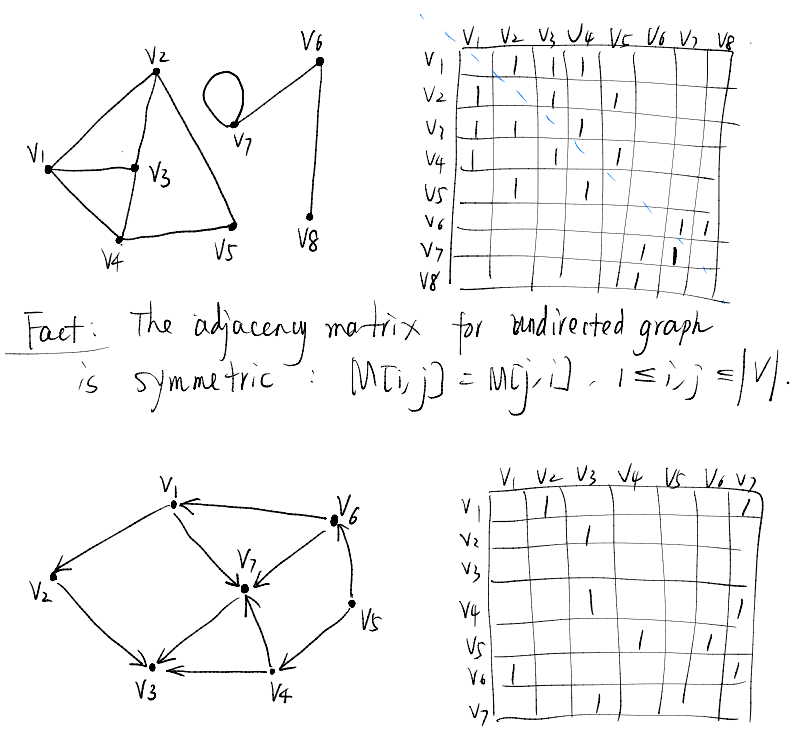 V6
V2
V7
V1
V3
V4
V5
V8
V1 V2 V3 V4 V5 V6 V7 V8
V1 1 1 1
V2 1 1 1
V3 1 1 1
V4 1 1 1
V5 1 1
V6 1 1
V7 1 1
V8 1
Fact: The adjacency matrix for undirected graph
is symmetric : M[i,j] = M[j,i], 1 ≤ i,j ≤ |V|.
V1
V6
V7
V2
V5
V3
V4
V1 V2 V3 V4 V5 V6 V7
V1 1 1
V2 1
V3
V4 1 1
V5 1 1
V6 1 1
V7 1